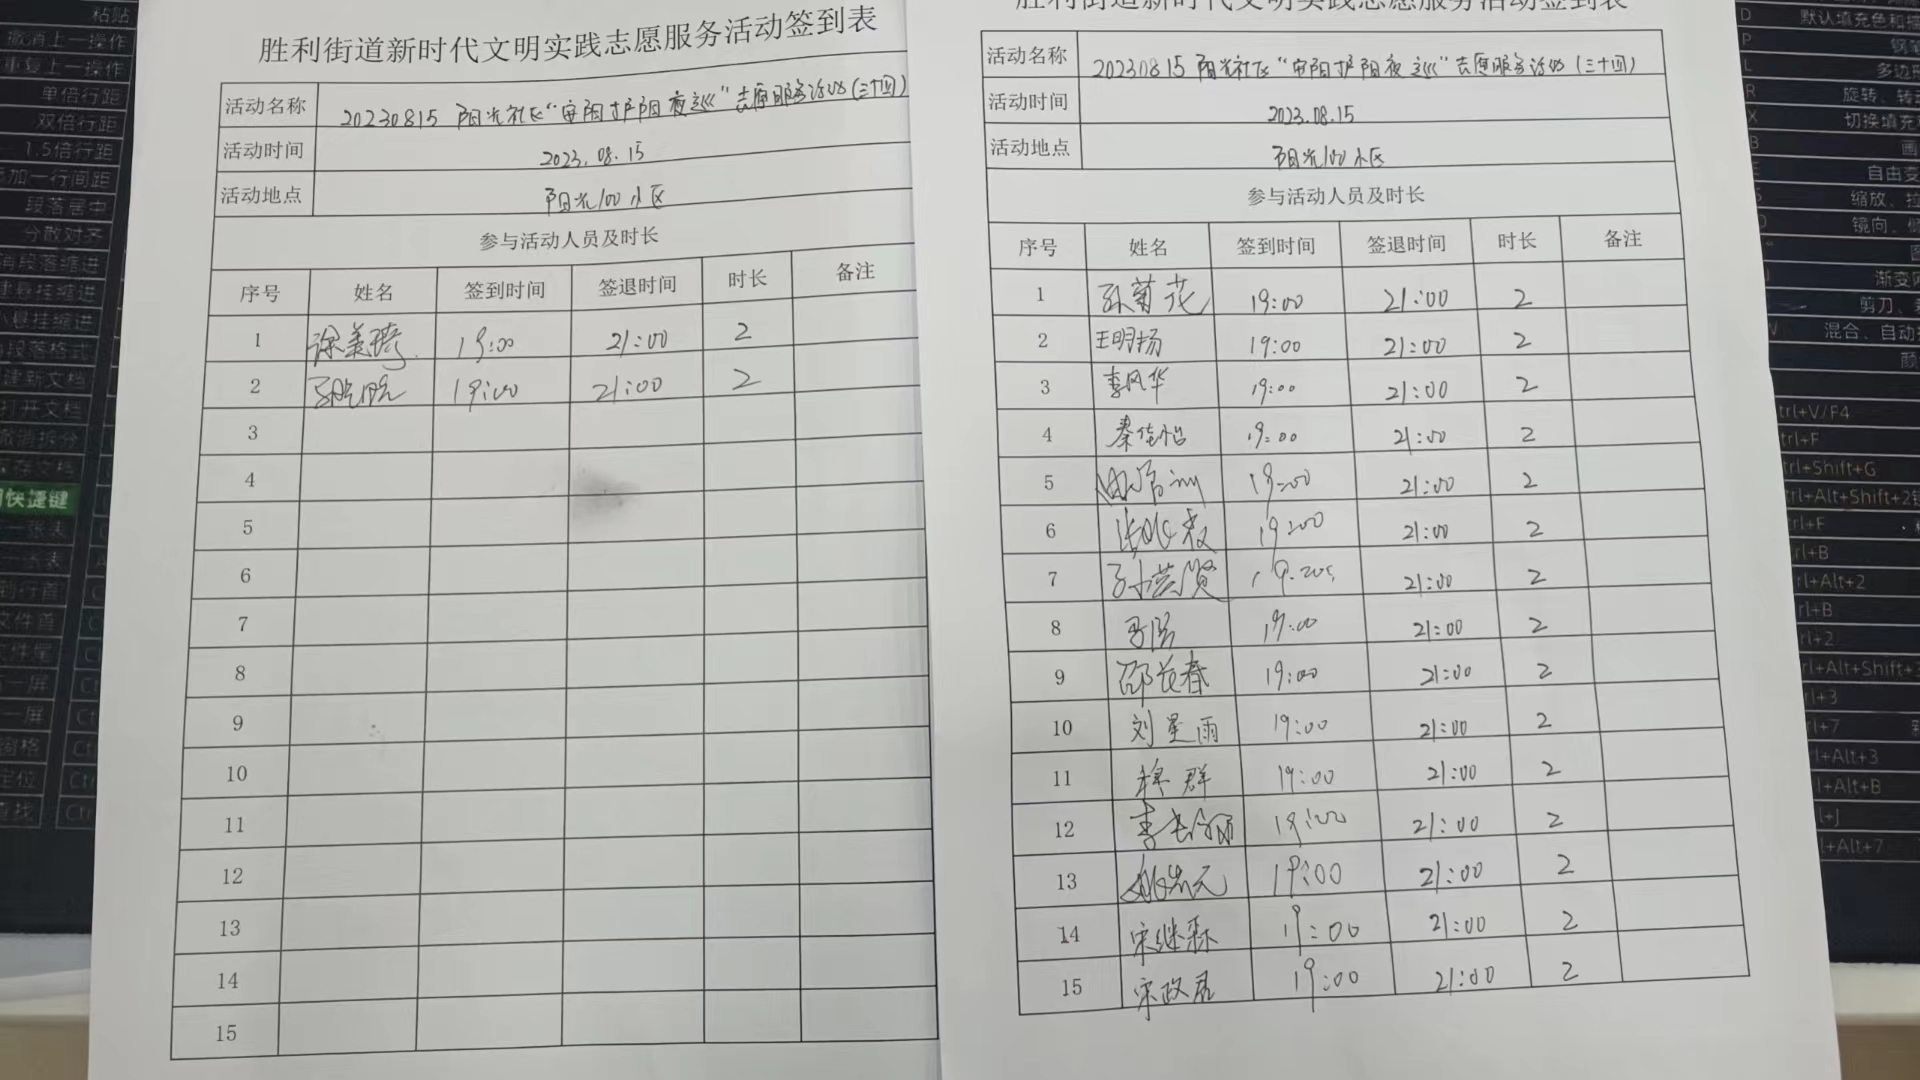 胜利街道新时代文明实践志愿服务活动签到表
活动名称 20230815 阳光社区“安阳护阳夜巡”志愿服务活动(三十四)
活动时间 2023.08.15
活动地点 阳光100小区
参与活动人员及时长
序号 姓名 签到时间 签退时间 时长 备注
1 徐美琦 19:00 21:00 2
2 19:00 21:00 2
3
4
5
6
7
8
9
10
11
12
13
14
15
胜利街道新时代文明实践志愿服务活动签到表
活动名称 20230815 阳光社区“安阳护阳夜巡”志愿服务活动(三十四)
活动时间 2023.08.15
活动地点 阳光100小区
参与活动人员及时长
序号 姓名 签到时间 签退时间 时长 备注
1 孙菊花 19:00 21:00 2
2 王明扬 19:00 21:00 2
3 李风华 19:00 21:00 2
4 秦佳怡 19:00 21:00 2
5 19:00 21:00 2
6 19:00 21:00 2
7 孙洪贤 21:00 2
8 19:00 21:00 2
9 邵长春 19:00 21:00 2
10 刘星雨 19:00 21:00 2
11 穆群 19:00 21:00 2
12 19:00 21:00 2
13 19:00 21:00 2
14 宋继霖 19:00 21:00 2
15 宋政君 19:00 21:00 2
粘贴
撤消上一操作
重复上一操作
单倍行距
双倍行距
1.5倍行距
添加一行间距
段落居中
分散对齐
快捷键
默认填充色和描
多边形
旋转、转动
切换填充和
自由变
缩放、拉
镜向、倾
渐变网
混合、自动
trl+V/F4
trl+F
trl+Shift+G
trl+Alt+Shift+2
rl+F
rl+B
rl+Alt+2
rl+B
rl+2
rl+Alt+Shift+
rl+3
rl+7
l+Alt+3
l+Alt+B
l+J
l+Alt+7